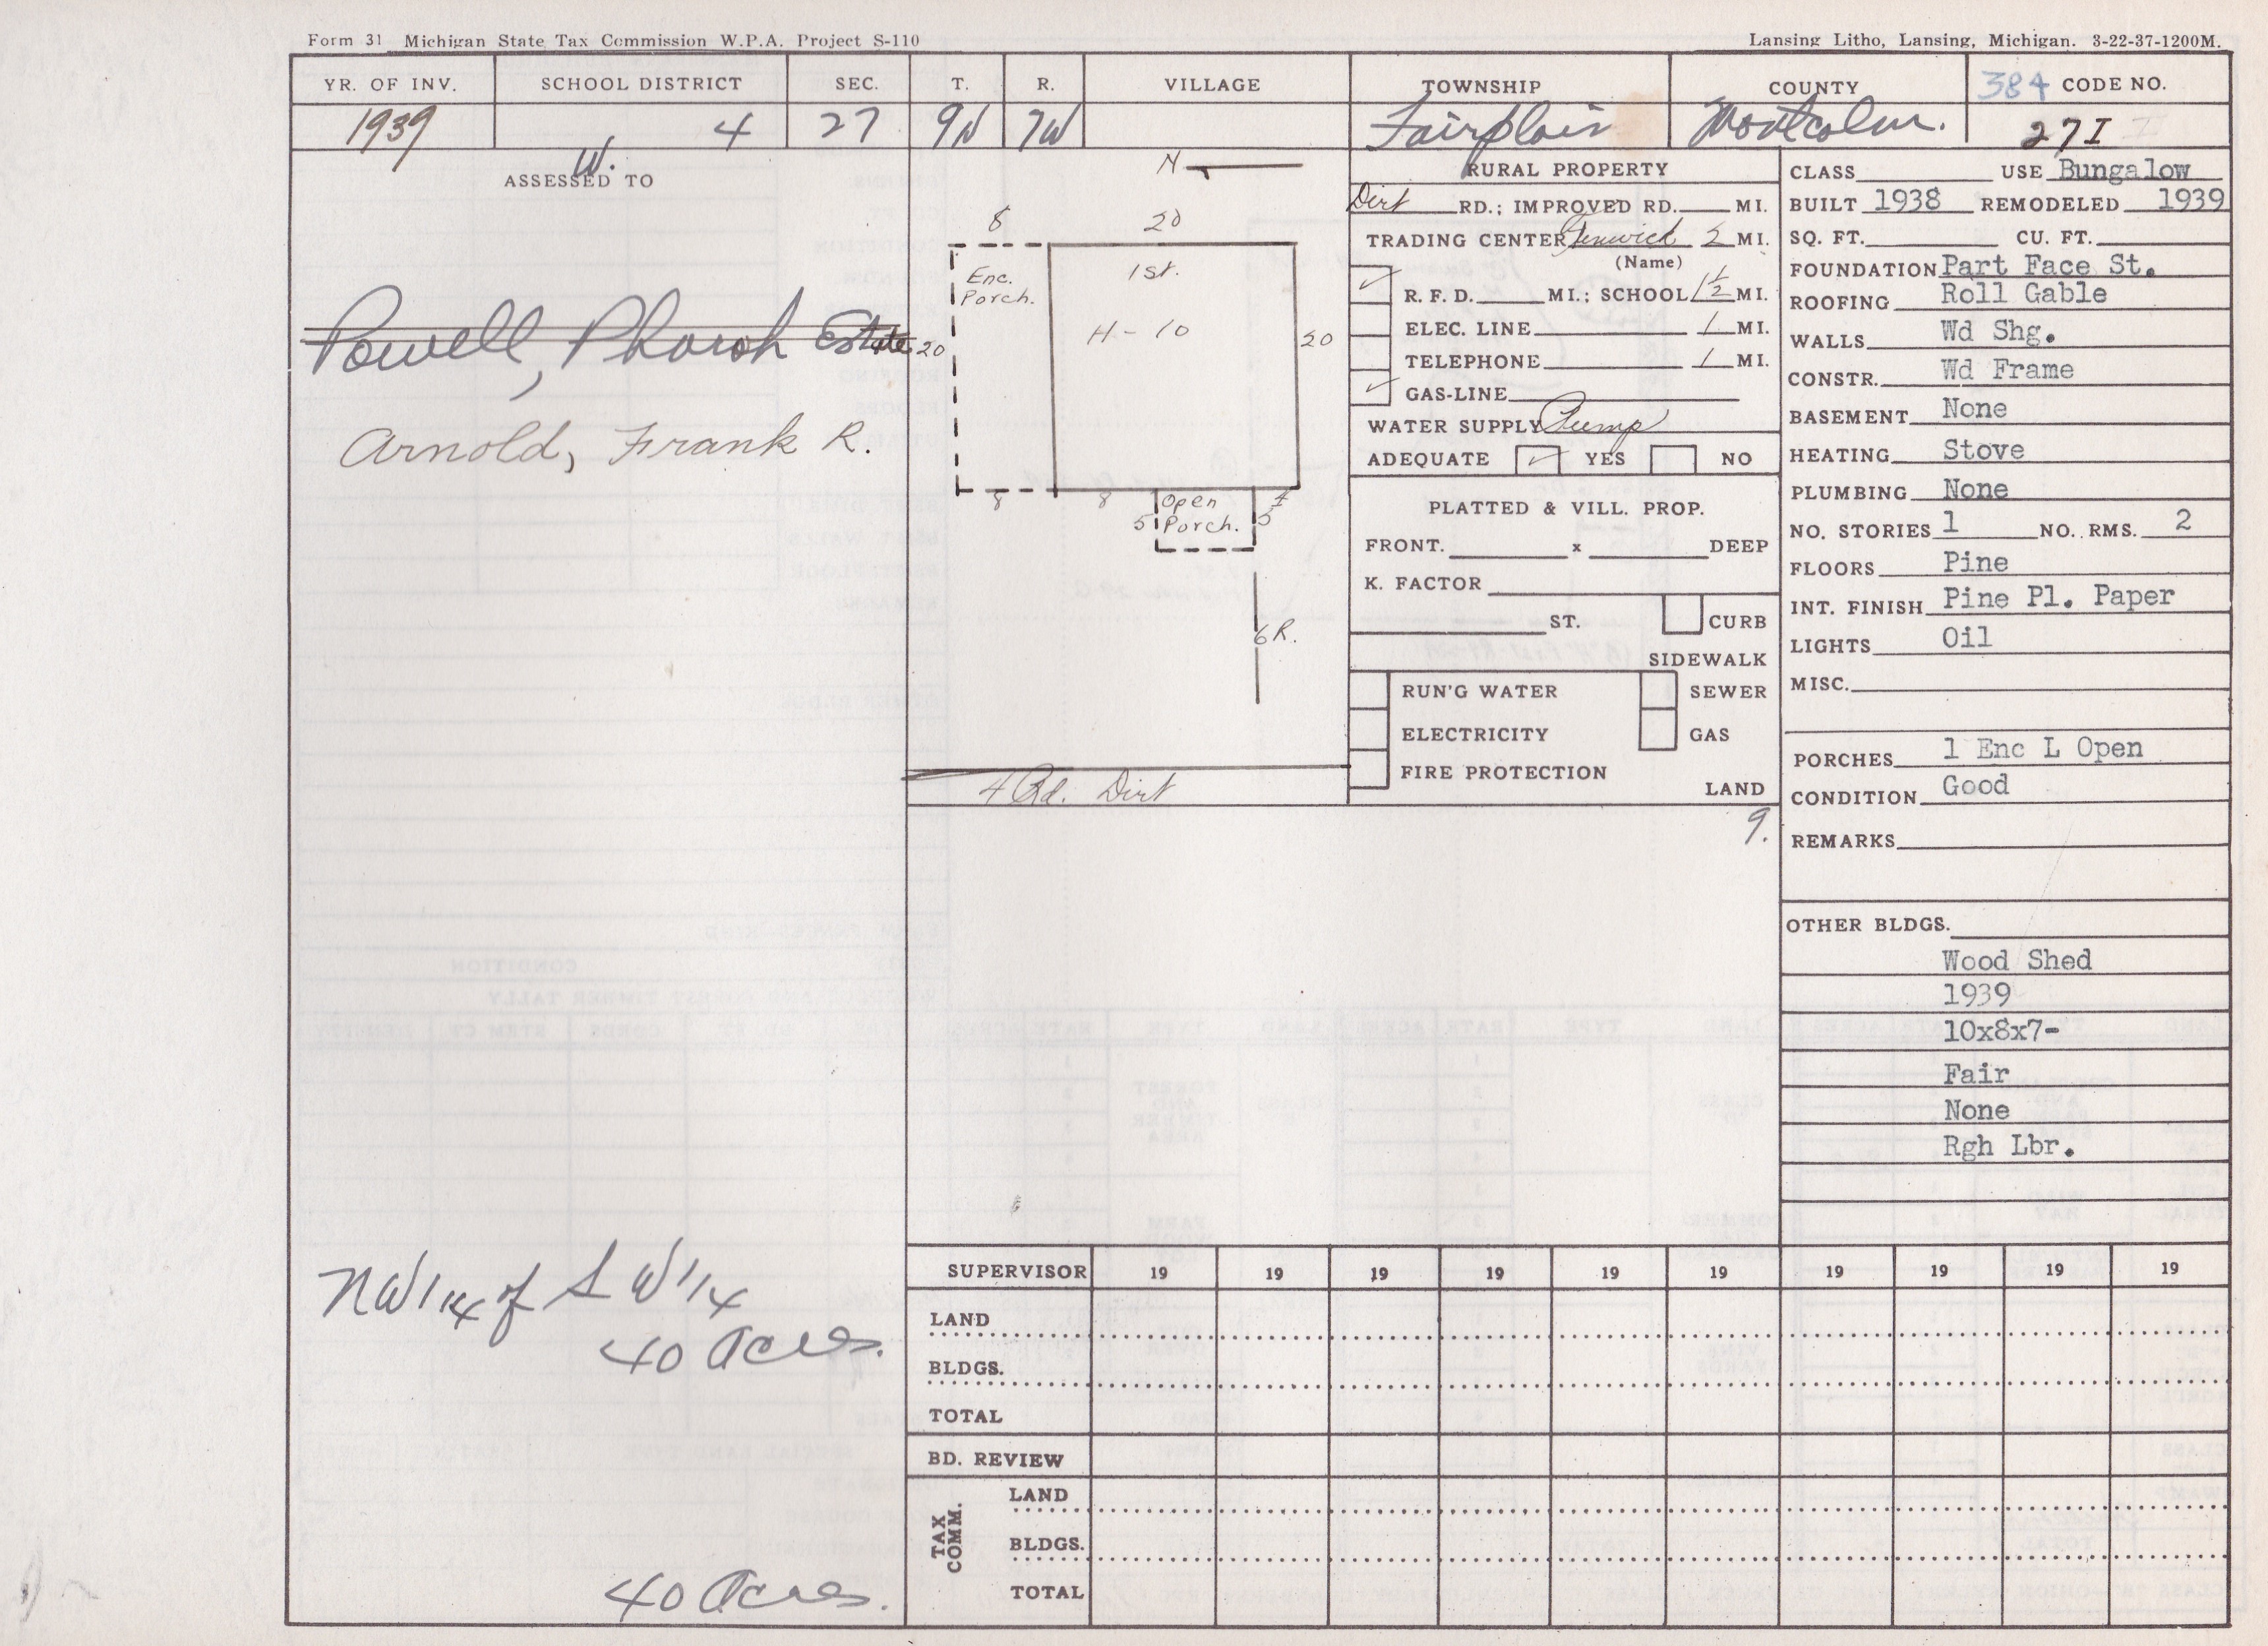 Form 31 Michigan State Tax Commission W.P.A. Project S-110
Lansing Litho, Lansing, Michigan. 3-22-37-1200M.
YR. OF INV. SCHOOL DISTRICT SEC. T. R. VILLAGE TOWNSHIP COUNTY 384 CODE NO.
1939 W. 4 27 9N 7W Fairplain Montcalm. 27I
ASSESSED TO
Powell, Pharoh Estate
Arnold, Frank R.
NW 1/4 of S W 1/4
40 Acres.
40 Acres.
N
8 20
Enc. Porch.
1st.
H-10
20 20
8 8 4
5 Open Porch. 5
6R.
4 Rd. Dirt
RURAL PROPERTY
Dirt RD.; IMPROVED RD. MI.
TRADING CENTER Fenwick 2 MI.
(Name)
✓ R. F. D. MI.; SCHOOL 1½ MI.
ELEC. LINE 1 MI.
TELEPHONE 1 MI.
✓ GAS-LINE
WATER SUPPLY Pump
ADEQUATE ✓ YES NO
PLATTED & VILL. PROP.
FRONT. x DEEP
K. FACTOR
ST. CURB
SIDEWALK
RUN'G WATER SEWER
ELECTRICITY GAS
FIRE PROTECTION
LAND
9.
CLASS USE Bungalow
BUILT 1938 REMODELED 1939
SQ. FT. CU. FT.
FOUNDATION Part Face St.
ROOFING Roll Gable
WALLS Wd Shg.
CONSTR. Wd Frame
BASEMENT None
HEATING Stove
PLUMBING None
NO. STORIES 1 NO. RMS. 2
FLOORS Pine
INT. FINISH Pine Pl. Paper
LIGHTS Oil
MISC.
PORCHES 1 Enc L Open
CONDITION Good
REMARKS
OTHER BLDGS.
Wood Shed
1939
10x8x7-
Fair
None
Rgh Lbr.
SUPERVISOR 19 19 19 19 19 19 19 19 19 19
LAND
BLDGS.
TOTAL
BD. REVIEW
TAX COMM.
LAND
BLDGS.
TOTAL